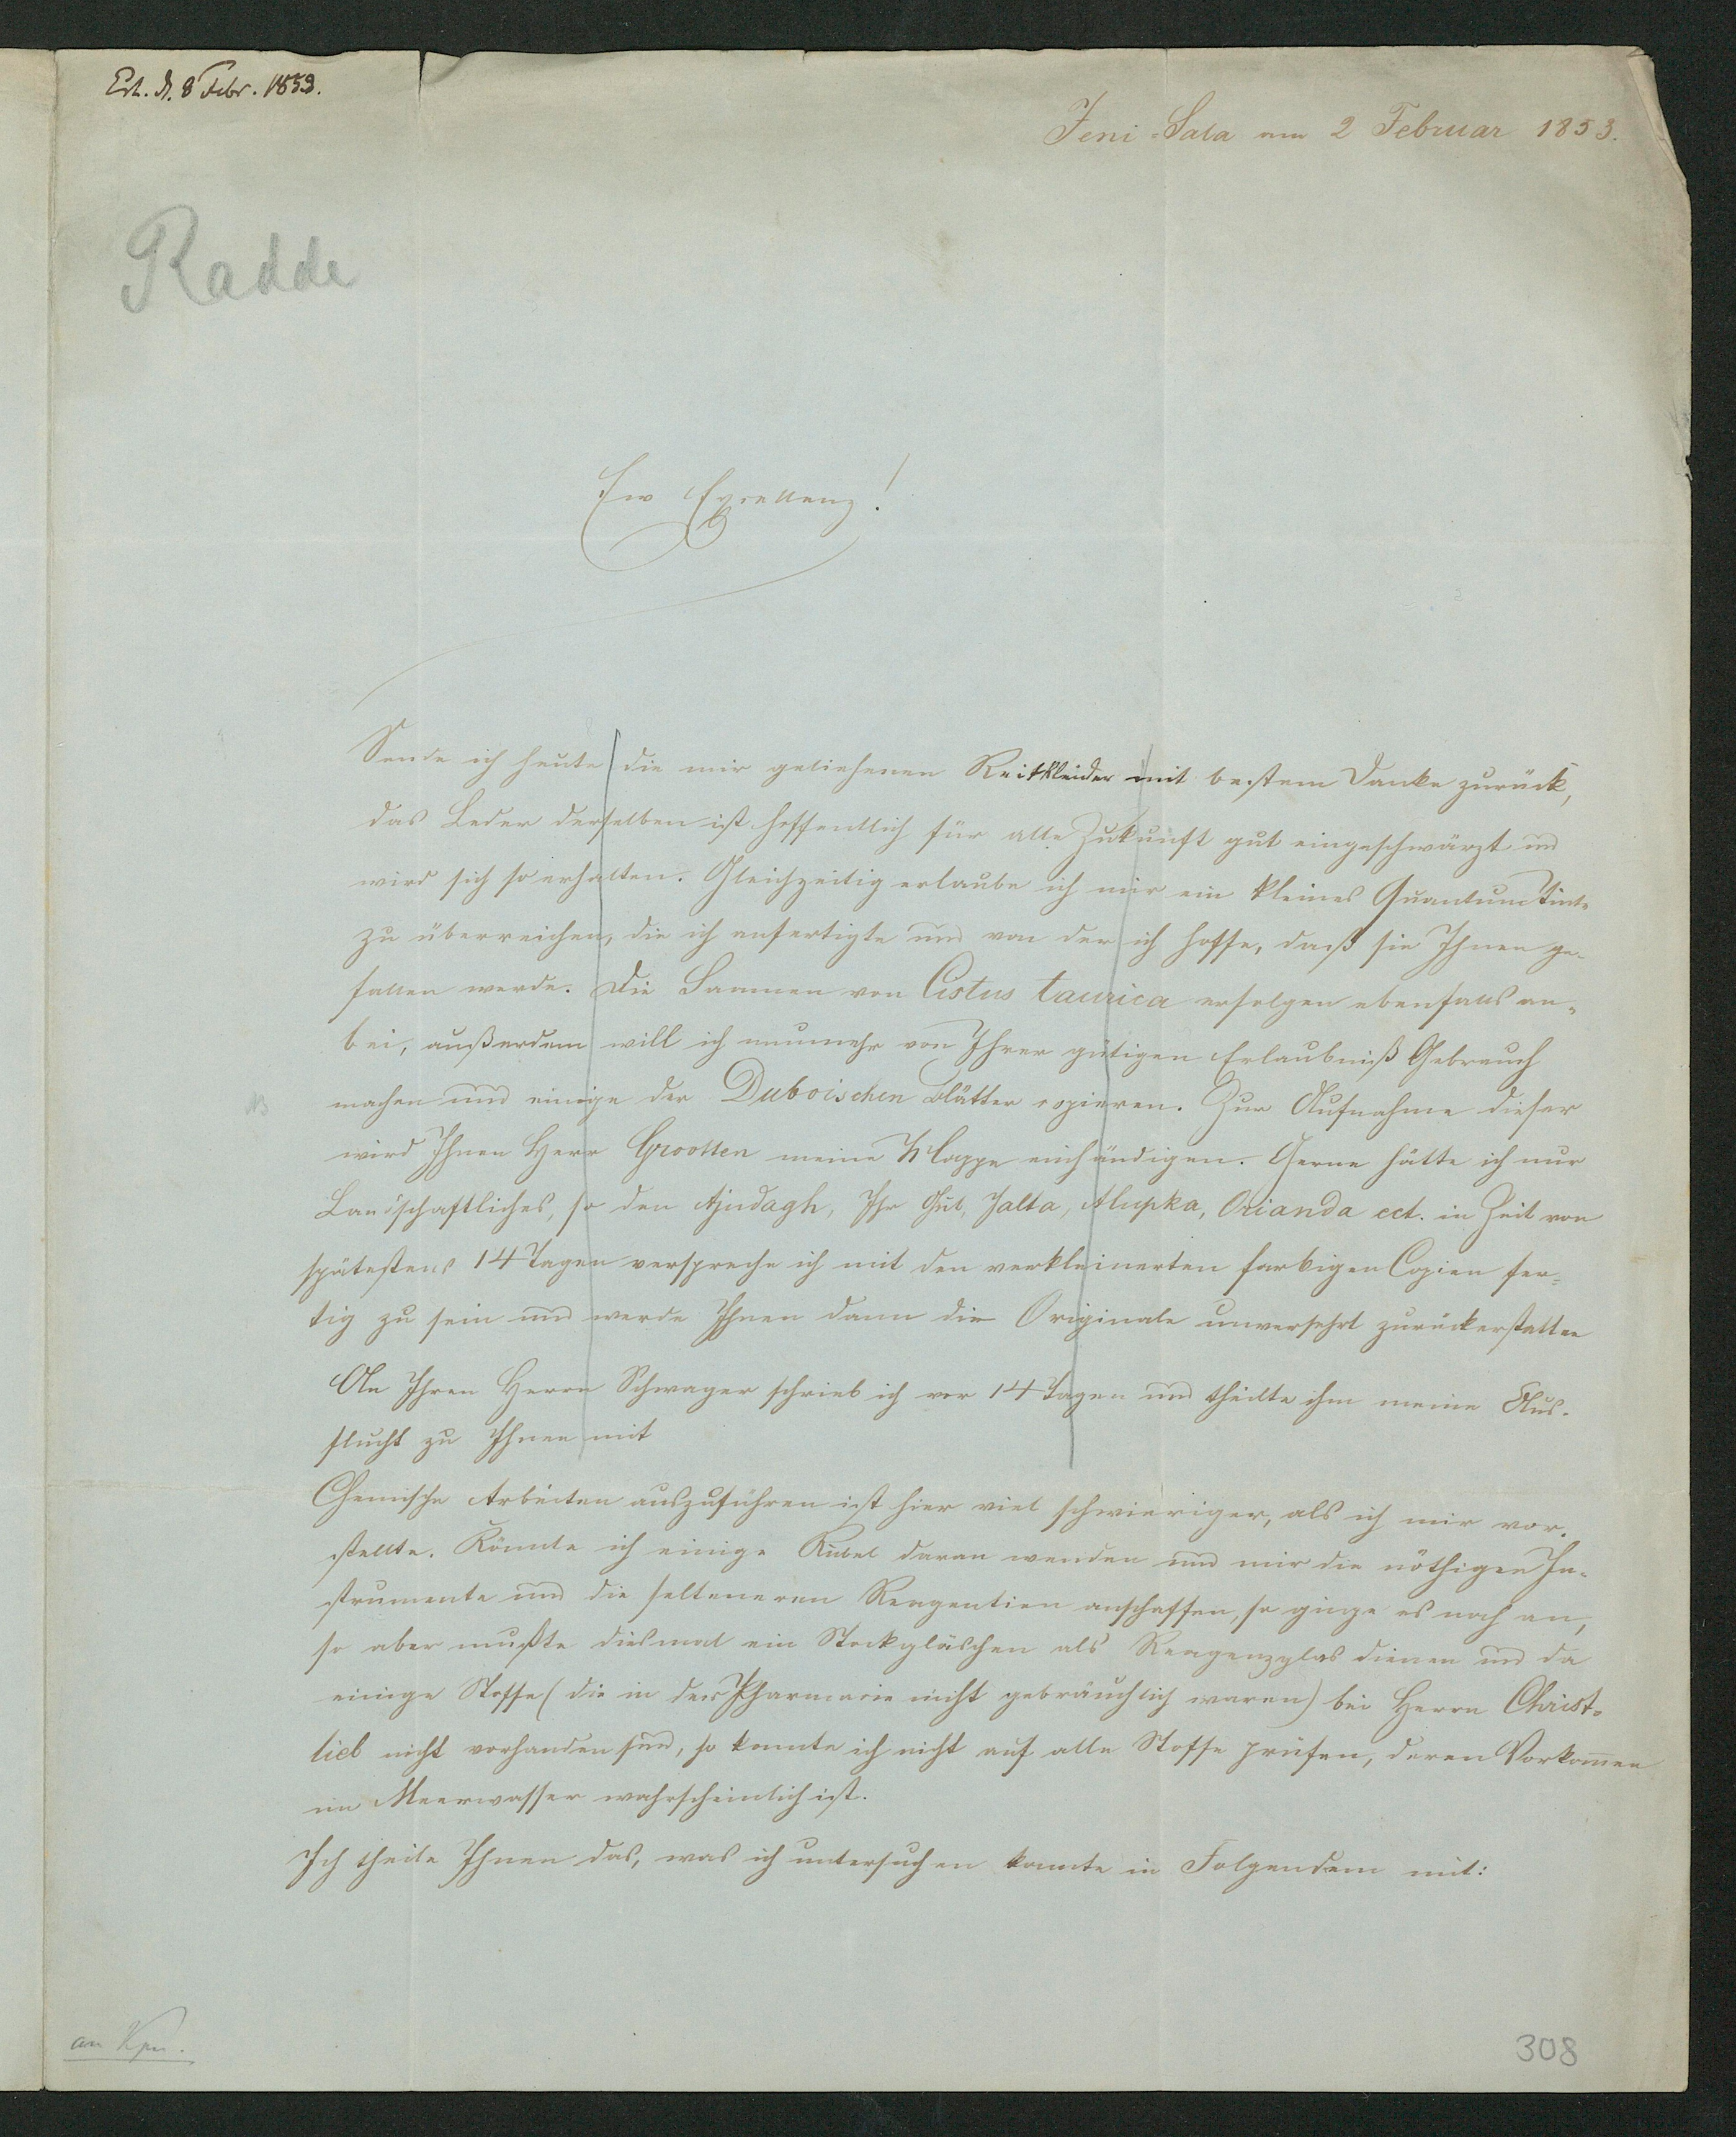 Erh. d. 8 Febr. 1853.
Jeni-Sala am 2 Februar 1853.
Radde
Ew Excellenz!
Sende ich heute die mir geliehenen Reitkleider mit bestem Danke zurück,
das Leder derselben ist hoffentlich für alle Zukunft gut eingeschwärzt und
wird sich so erhalten. Gleichzeitig erlaube ich mir ein kleines Quantum Tinte
zu überreichen, die ich anfertigte und von der ich hoffe, daß sie Ihnen ge-
fallen werde. Die Saamen von Cistus taurica erfolgen ebenfalls an-
bei, außerdem will ich nunmehr von Ihrer gütigen Erlaubniß Gebrauch
machen und einige der Duboischen Blätter copieren. Zur Aufnahme dieser
wird Ihnen Herr Grootten meine Mappe einhändigen. Gerne hätte ich nur
Landschaftliches, so den Ajudagh, Ihr Gut, Jalta, Alupka, Orianda ect. in Zeit von
spätestens 14 Tagen verspreche ich mit den verkleinerten farbigen Copien fer-
tig zu sein und werde Ihnen dann die Originale unversehrt zurückerstatten
An Ihren Herrn Schwager schrieb ich vor 14 Tagen und theilte ihm meine Aus-
flucht zu Ihnen mit
Chemische Arbeiten auszuführen ist hier viel schwieriger, als ich mir vor-
stellte. Könnte ich einige Rubel daran wenden und mir die nöthigen In-
strumente und die selteneren Reagentien anschaffen, so ginge es noch an,
so aber mußte diesmal ein Stockgläschen als Reagenzglas dienen und da
einige Stoffe (die in der Pharmacie nicht gebräuchlich waren) bei Herrn Christ-
lieb nicht vorhanden sind, so konnte ich nicht auf alle Stoffe prüfen, deren Vorkommen
im Meerwasser wahrscheinlich ist.
Ich theile Ihnen das, was ich untersuchen konnte in Folgendem mit:
an Kpn.
308